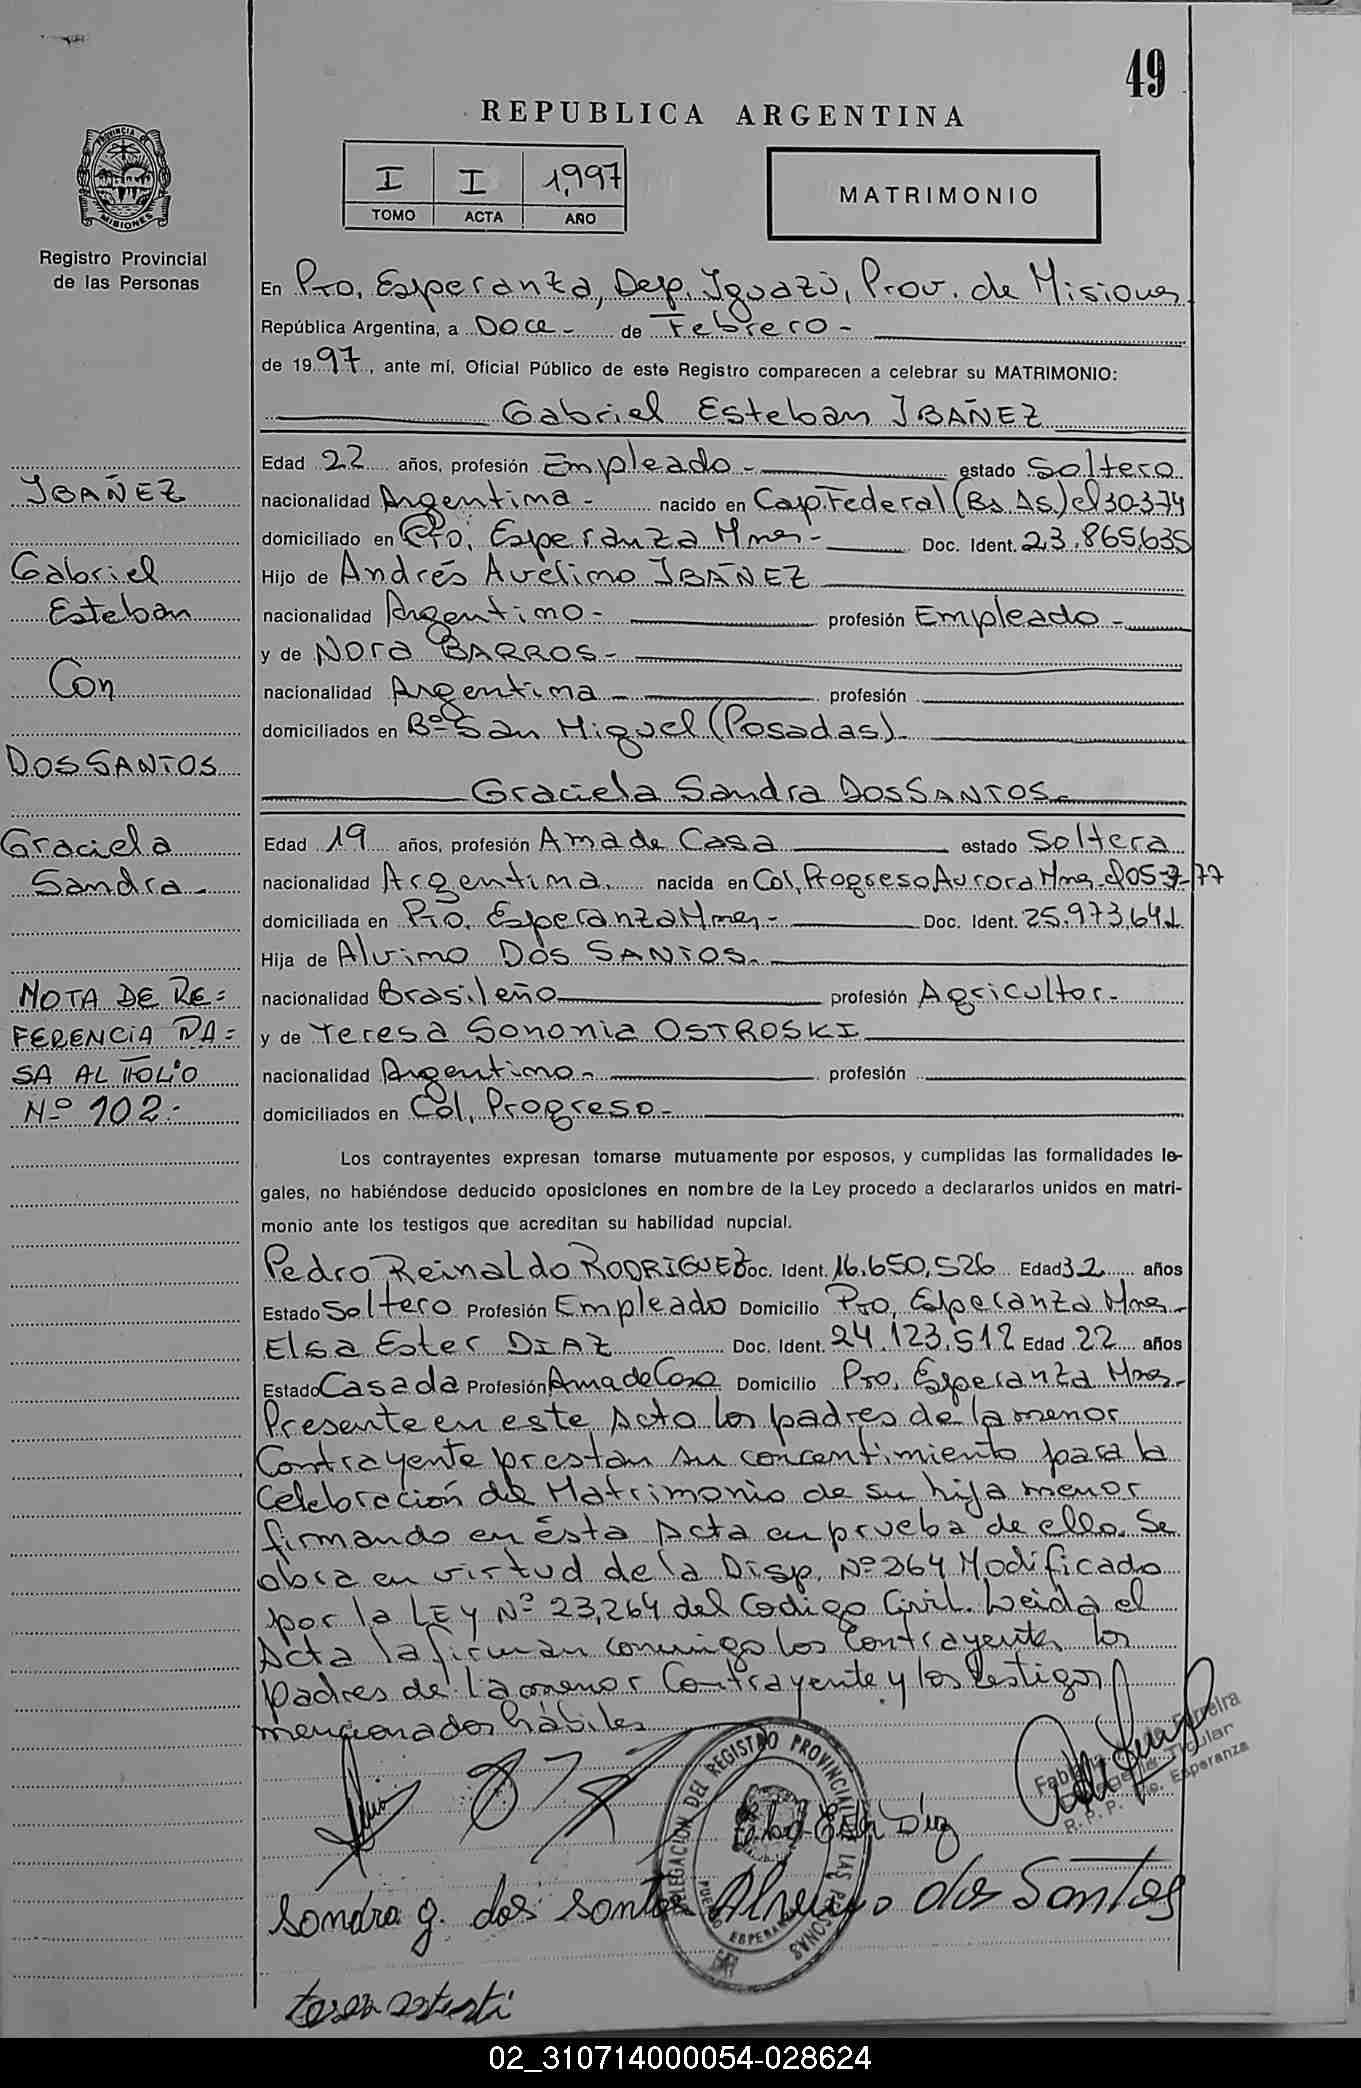 49
REPUBLICA ARGENTINA
I I 1,997
TOMO ACTA AÑO
MATRIMONIO
PROVINCIA DE MISIONES
Registro Provincial
de las Personas
En Pto. Esperanza, Dep. Iguazú, Prov. de Misiones
República Argentina, a Doce- de Febrero-
de 1997, ante mí, Oficial Público de este Registro comparecen a celebrar su MATRIMONIO:
Gabriel Esteban IBAÑEZ
Edad 22 años, profesión Empleado- estado Soltero
nacionalidad Argentina- nacido en Cap. Federal (Bs. As.) el 30-3-74
domiciliado en Pto. Esperanza Mnes- Doc. Ident. 23.865.635
Hijo de Andrés Avelino IBAÑEZ
nacionalidad Argentino- profesión Empleado-
y de Nora BARROS-
nacionalidad Argentina- profesión
domiciliados en Bº San Miguel (Posadas)-
Graciela Sandra DOS SANTOS-
Edad 19 años, profesión Ama de Casa estado Soltera
nacionalidad Argentina. nacida en Col. Progreso Aurora Mnes. el 05- -77
domiciliada en Pto. Esperanza Mnes- Doc. Ident. 25.973.641
Hija de Alvino DOS SANTOS-
nacionalidad Brasileño profesión Agricultor-
y de Teresa Sononia OSTROSKI
nacionalidad Argentina- profesión
domiciliados en Col. Progreso-
Los contrayentes expresan tomarse mutuamente por esposos, y cumplidas las formalidades le-
gales, no habiéndose deducido oposiciones en nombre de la Ley procedo a declararlos unidos en matri-
monio ante los testigos que acreditan su habilidad nupcial.
Pedro Reinaldo RODRIGUEZ Doc. Ident. 16.650.526 Edad 32 años
Estado Soltero Profesión Empleado Domicilio Pto. Esperanza Mnes-
Elsa Ester DIAZ Doc. Ident. 24.123.512 Edad 22 años
Estado Casada Profesión Ama de Casa Domicilio Pto. Esperanza Mnes-
Presente en este Acto los padres de la menor
Contrayente prestan su concentimiento para la
Celebración del Matrimonio de su hija menor
firmando en ésta Acta en prueba de ello. Se
obra en virtud de la Disp. Nº 264 Modificado
por la LEY Nº 23,264 del Codigo Civil. Leida el
Acta la firman conmigo los Contrayentes los
padres de la menor Contrayente y los testigos
mencionados hábiles
IBAÑEZ
Gabriel
Esteban
Con
DOS SANTOS
Graciela
Sandra-
NOTA DE RE=
FERENCIA PA=
SA AL FOLIO
Nº 102.-
DELEGACION DEL REGISTRO PROVINCIAL DE LAS PERSONAS
PUERTO ESPERANZA
Ester Diaz
Ferreira
Titular
R. P. P. Pto. Esperanza
Sandra g. dos Santos Alvino dos Santos
02_310714000054-028624